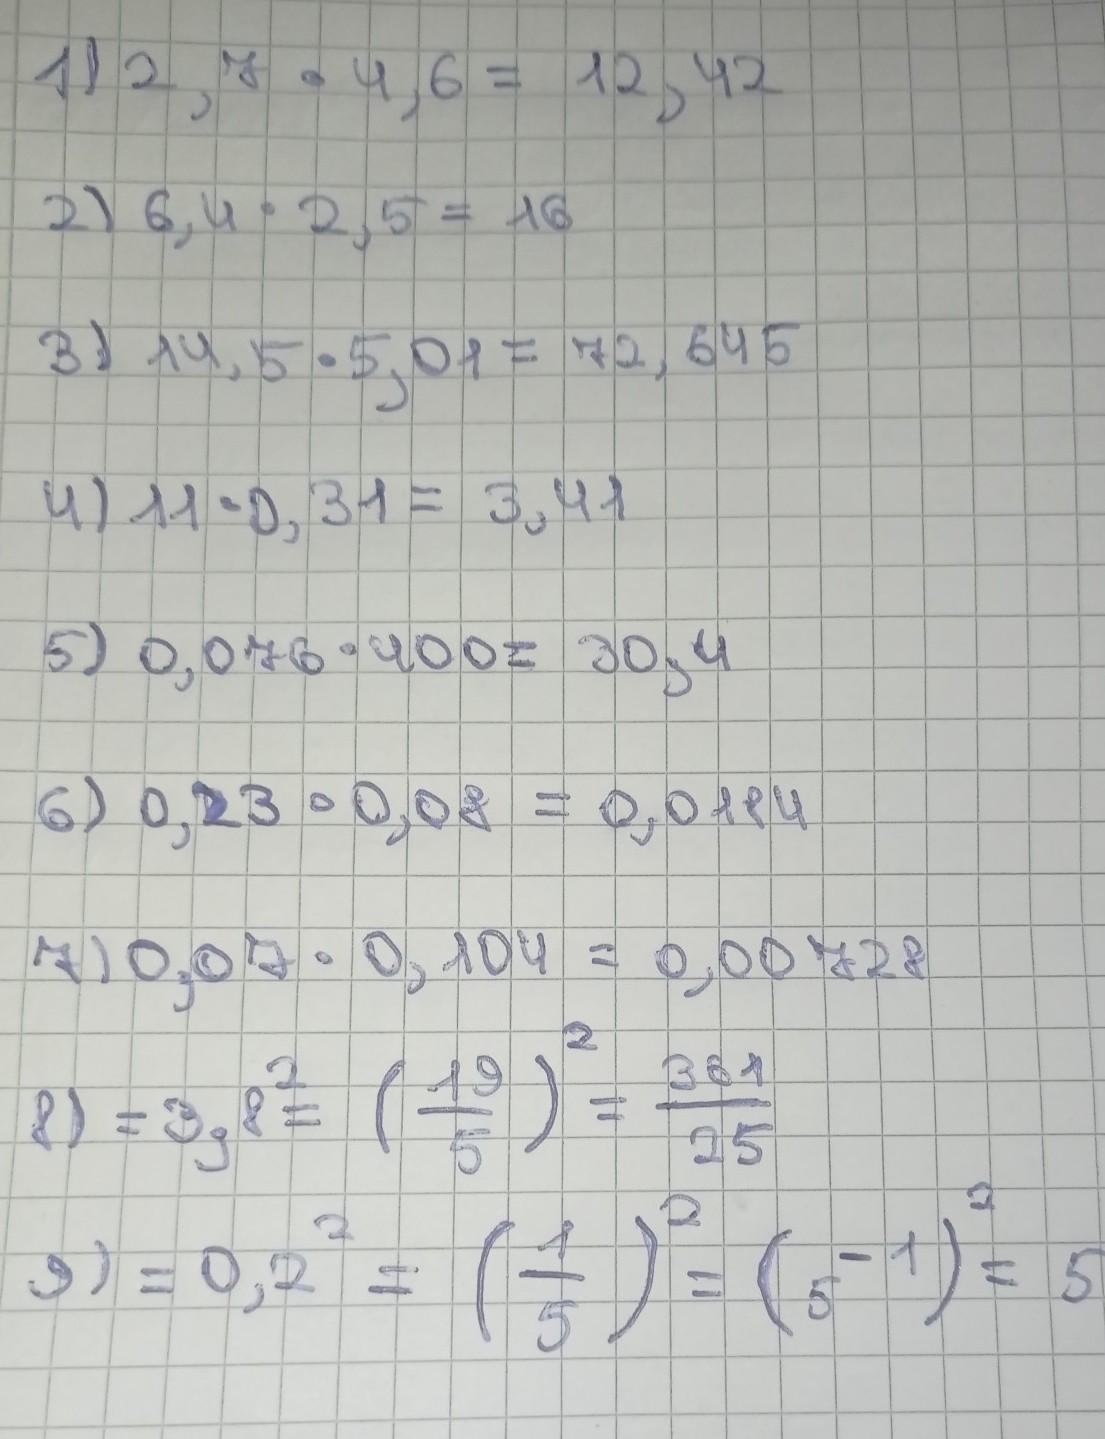 1) 2,7 · 4,6 = 12,42
2) 6,4 · 2,5 = 16
3) 14,5 · 5,01 = 72,645
4) 11 · 0,31 = 3,41
5) 0,076 · 400 = 30,4
6) 0,23 · 0,08 = 0,0184
7) 0,07 · 0,104 = 0,00728
8) = 3,8² = (19/5)² = 361/25
9) = 0,2² = (1/5)² = (5⁻¹)² = 5